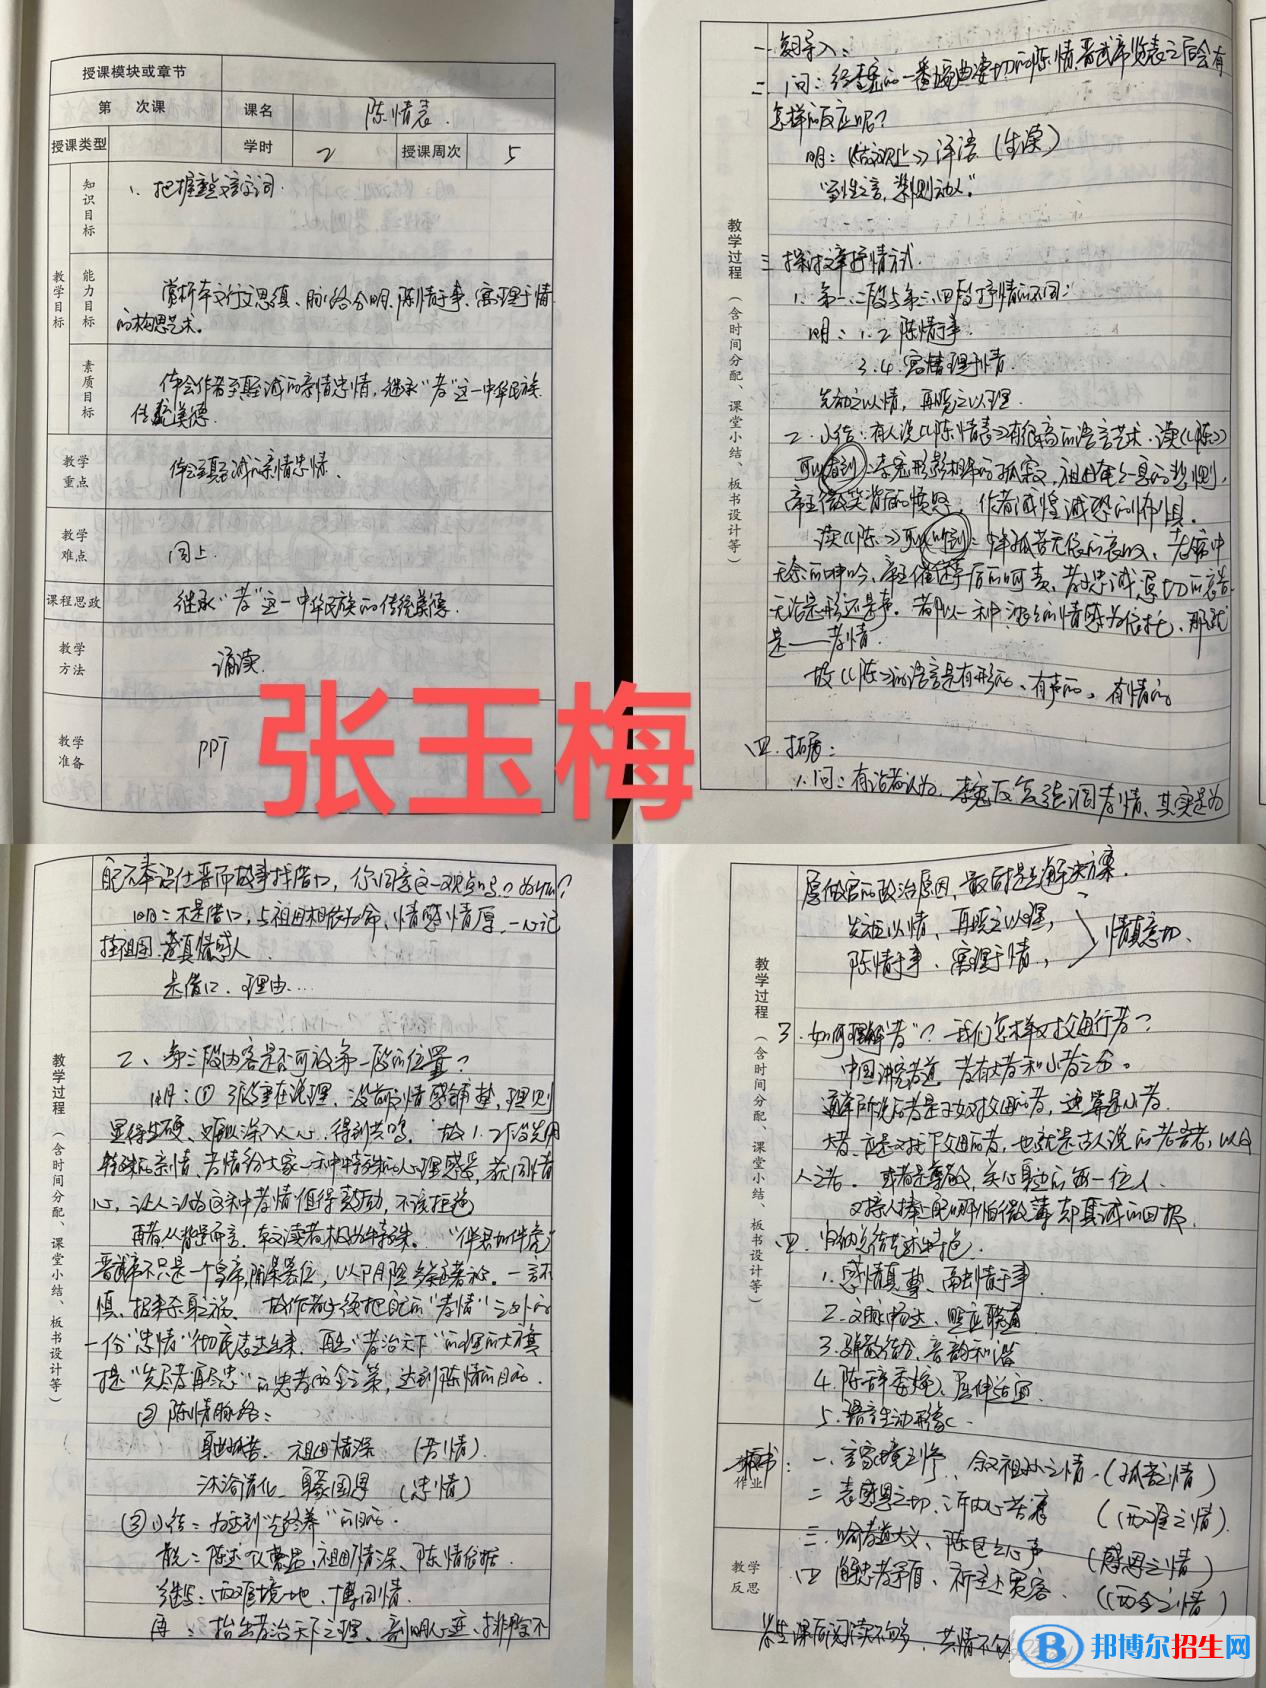 授课模块或章节
第 次课 课名 陈情表.
授课类型 学时 2 授课周次 5
教学目标
知识目标
1、把握重点文言字词.
能力目标
赏析本文行文思缜、脉络分明、陈情于事、寓理于情
的构思艺术。
素质目标
体会作者至真至诚的亲情忠情,继承"孝"这一中华民族
传统美德.
教学重点
体会至真至诚的亲情忠情.
教学难点
同上.
课程思政
继承"孝"这一中华民族的传统美德.
教学方法
诵读.
教学准备
PPT
张玉梅
教学过程(含时间分配、课堂小结、板书设计等)
一 复习导入:
二 1问:经李密的一番婉曲凄切的陈情,晋武帝览表之后会有
怎样的反应呢?
明:《古文观止》评语(生读)
"至性之言,"
三 探讨文章抒情方式.
1、第一、二段与第三、四段抒情的不同:
明:1.2 陈情于事.
3.4 寓理于情.
先动之以情,再晓之以理.
2、小结:有人说《陈情表》有很高的语言艺术.读《陈》
可以看到:李密形影相吊的孤寂,祖母奄奄一息的悲恻,
帝王微笑背后的愤怒,作者诚惶诚恐的惧.
读《陈》可以听到:
无论是形还是声。都以一种浓浓的情感为依托,那就
是——孝情.
故《陈》的语言是有形的、有声的、有情的。
四.拓展:
1.问:有论者认为,李密反复强调孝情,其实是为
教学过程(含时间分配、课堂小结、板书设计等)
自己不奉诏仕晋而故事找借口,你同意这一观点吗?为什么?
明:不是借口,与祖母相依为命,情感情厚,一心记
挂祖母,真情感人.
是借口、理由...
2、第三段内容是否可放第一段的位置?
明:① 段重在说理,没前段的情感铺垫,理则
显得生硬、难以深入人心,得到共鸣.故1.2段先用
特殊的亲情、孝情给大家一种特殊的心理感受,
心,让人认为这种孝情值得鼓励,不该拒绝
再者,从背景而言,本文读者极为特殊."伴君如伴虎"
晋武帝不只是一个皇帝,
慎,招来杀身之祸.故作者必须把自己的"孝情"之外的
一份"忠情"彻底表达出来,再由"孝治天下"的理的大旗
提"先尽孝再尽忠"的忠孝两全之策,达到陈情的目的.
② 陈情脉络:
身世孤苦、祖母情深 (苦情).
沐浴清化、身蒙国恩 (忠情)
③ 小结:为达到"终养"的目的.
首先:陈述,祖母情深、陈情依据.
继与:两难境地,博同情.
再:抬出孝治天下之理、剖明心迹、排除不
教学过程(含时间分配、课堂小结、板书设计等)
愿做官的政治原因,最后提出解决方案.
先以情、再晓之以理,
陈情于事、寓理于情, 情真意切.
3、如何理解"孝"?我们怎样对父母行孝?
中国讲究孝道,孝有大孝和小孝之分。
通常所说的孝是子女对父母的孝,这算是小孝.
大孝,应是对天下父母的孝,也就是古人说的老吾老,以及
人之老.或者是尊敬,关心身边每一位人.
对亲人捧上哪怕微薄却真诚的回报
四、归纳总结艺术特色.
1.感情真挚、寓情于事.
2.文脉畅达、照应联通
3.骈散结合、音韵和谐
4.陈辞委婉、屈伸适宜.
5.语言生动形象.
板书
作业
一、言家境之惨、叙祖孙之情.(孤苦之情)
二 表感恩之切、诉内心苦衷 (两难之情).
三、喻孝道大义、陈臣之心声 (感恩之情)
四 解忠孝矛盾、祈主上宽容. (两全之情)
教学反思
学生课后阅读不够多,共情不
邦博尔招生网